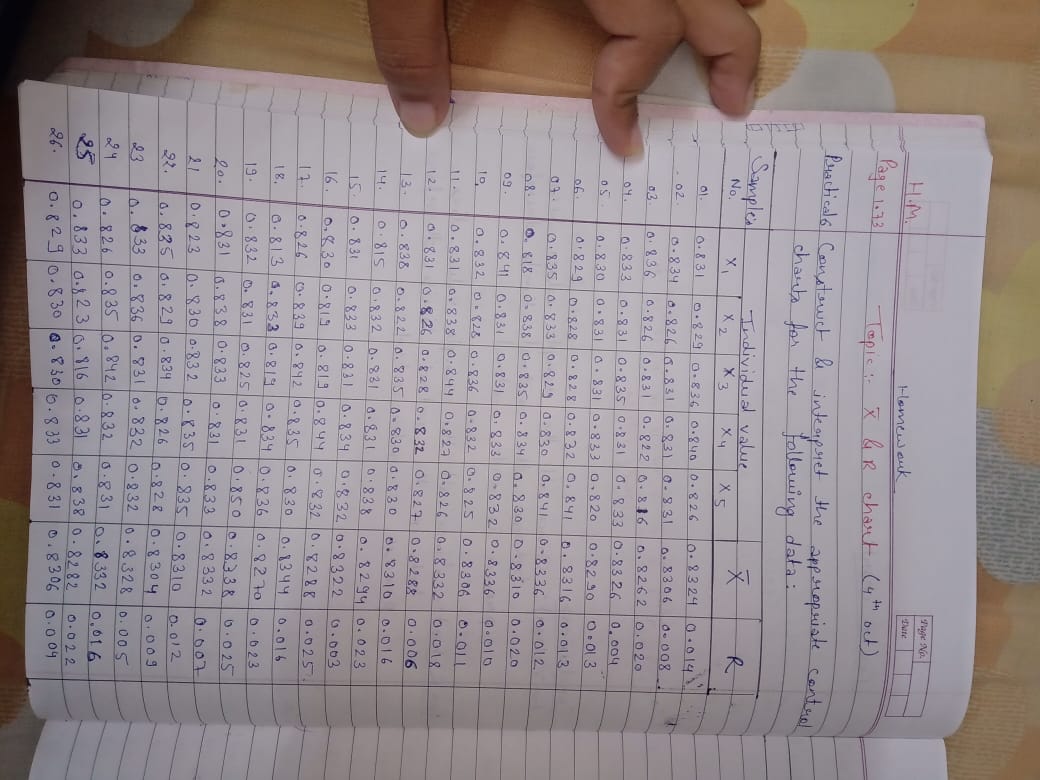 H.M.
Homework
Page No.
Date
Page 1.73
Topic :- X̄ & R chart (4th oct)
Practical: Construct & interpret the appropriate control
charts for the following data:
Samples No. Individual value X̄ R
X1 X2 X3 X4 X5
01. 0.831 0.829 0.836 0.840 0.826 0.8324 0.014
02. 0.834 0.826 0.831 0.831 0.831 0.8306 0.008
03. 0.836 0.826 0.831 0.822 0.816 0.8262 0.020
04. 0.833 0.831 0.835 0.831 0.833 0.8326 0.004
05. 0.830 0.831 0.831 0.833 0.820 0.8290 0.013
06. 0.829 0.828 0.828 0.832 0.841 0.8316 0.013
07. 0.835 0.833 0.829 0.830 0.841 0.8336 0.012
08. 0.818 0.838 0.835 0.834 0.830 0.8310 0.020
09. 0.841 0.831 0.831 0.833 0.832 0.8336 0.010
10. 0.832 0.828 0.836 0.832 0.825 0.8306 0.011
11. 0.831 0.838 0.844 0.827 0.826 0.8332 0.018
12. 0.831 0.826 0.828 0.832 0.827 0.8288 0.006
13. 0.838 0.822 0.835 0.830 0.830 0.8310 0.016
14. 0.815 0.832 0.831 0.831 0.838 0.8294 0.023
15. 0.831 0.833 0.831 0.834 0.832 0.8322 0.003
16. 0.830 0.819 0.819 0.844 0.832 0.8288 0.025
17. 0.826 0.839 0.842 0.835 0.830 0.8344 0.016
18. 0.813 0.833 0.819 0.834 0.836 0.8270 0.023
19. 0.832 0.831 0.825 0.831 0.850 0.8338 0.025
20. 0.831 0.838 0.833 0.831 0.833 0.8332 0.007
21 0.823 0.830 0.832 0.835 0.835 0.8310 0.012
22. 0.835 0.829 0.834 0.826 0.828 0.8304 0.009
23 0.833 0.836 0.831 0.832 0.832 0.8328 0.005
24 0.826 0.835 0.842 0.832 0.831 0.8332 0.016
25 0.833 0.823 0.816 0.831 0.838 0.8282 0.022
26. 0.829 0.830 0.830 0.833 0.831 0.8306 0.004